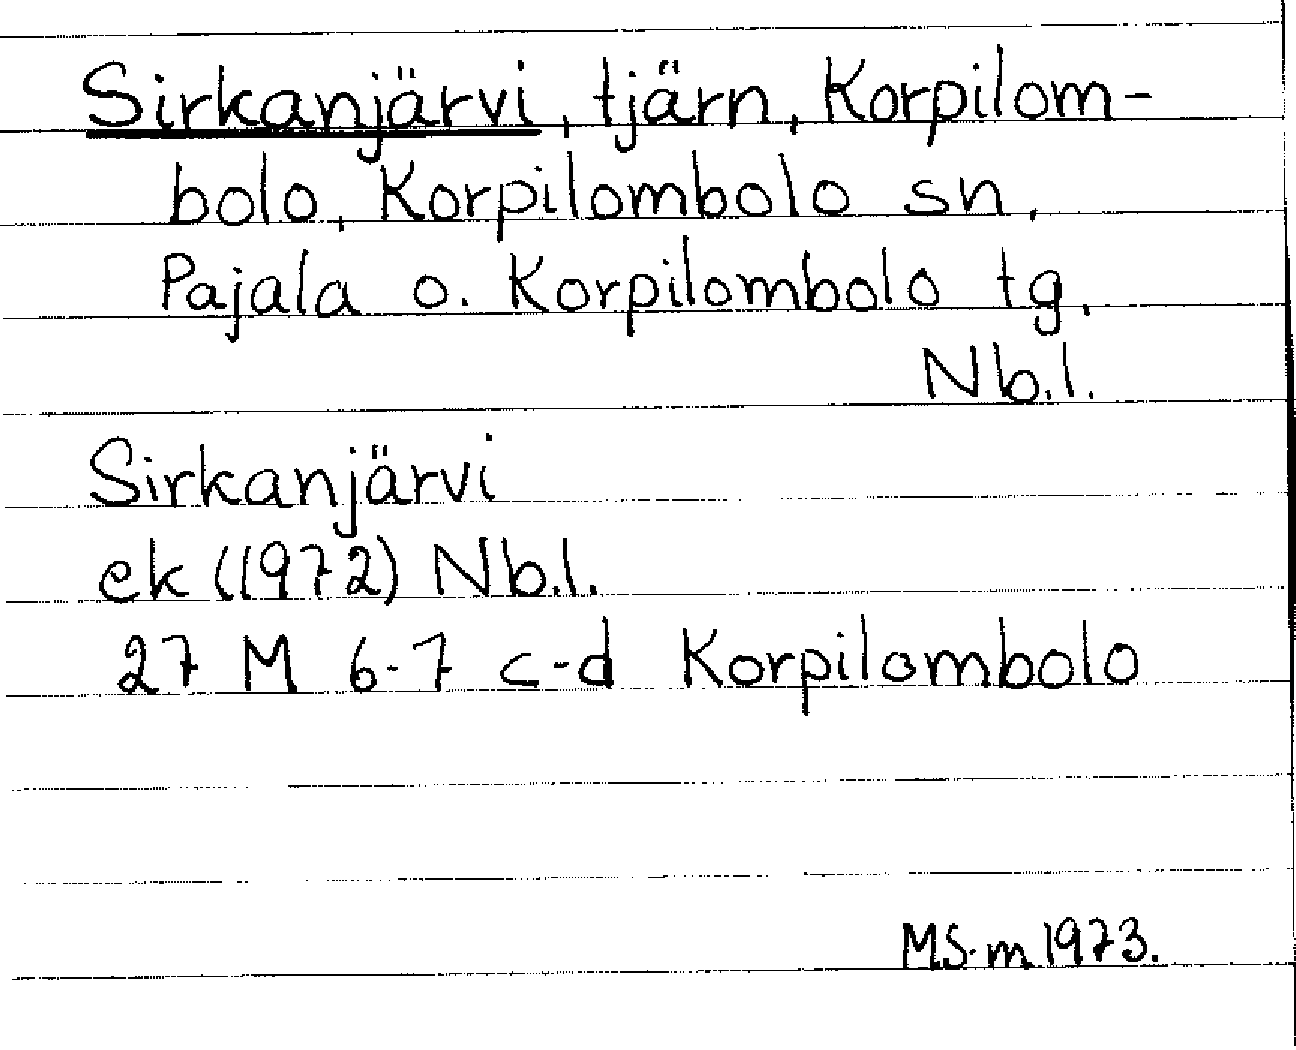 Sirkanjärvi, tjärn, Korpilom-
bolo, Korpilombolo sn,
Pajala o. Korpilombolo tg,
Nb.l.
Sirkanjärvi
ek (1972) Nb.l.
27 M 6-7 c-d Korpilombolo
MS.m 1973.